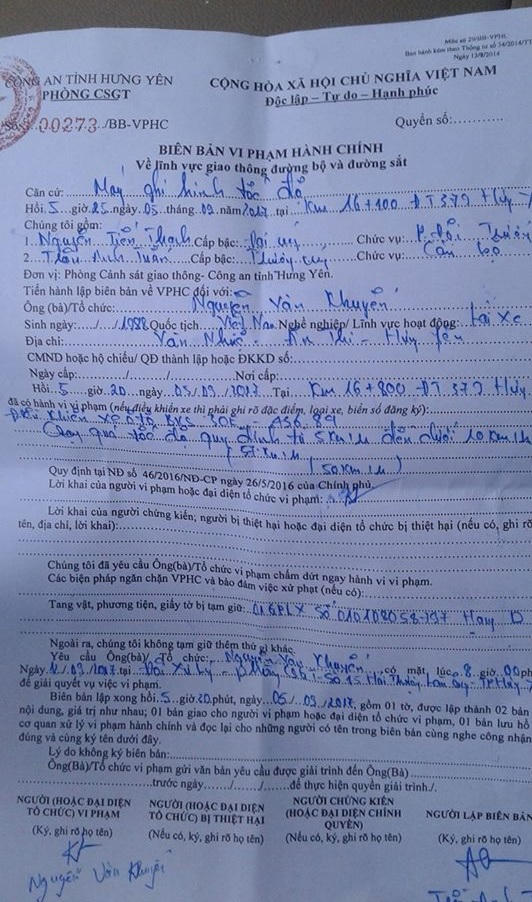 Mẫu số 29/BB-VPHC
Ban hành kèm theo Thông tư số 34/2014/TT
Ngày 13/8/2014
CÔNG AN TỈNH HƯNG YÊN
PHÒNG CSGT
CỘNG HÒA XÃ HỘI CHỦ NGHĨA VIỆT NAM
Độc lập – Tự do – Hạnh phúc
Số: 00273 /BB-VPHC
Quyển số:
BIÊN BẢN VI PHẠM HÀNH CHÍNH
Về lĩnh vực giao thông đường bộ và đường sắt
Căn cứ: Máy ghi hình tốc độ
Hồi 5 giờ 25 ngày 05 tháng 03 năm 2017 tại Km 16+100 ĐT 379
Chúng tôi gồm:
1. Nguyễn Tiến Thạch Cấp bậc: Đại úy Chức vụ: P. đội
2. Tuấn Cấp bậc: Thượng úy Chức vụ: Cán bộ
Đơn vị: Phòng Cảnh sát giao thông- Công an tỉnh Hưng Yên.
Tiến hành lập biên bản về VPHC đối với:
Ông (bà)/Tổ chức: Nguyễn Văn Khuyến
Sinh ngày: / / 1988 Quốc tịch Việt Nam Nghề nghiệp/ Lĩnh vực hoạt động: Lái xe
Địa chỉ: Vân Nhuế - Ân Thi - Hưng Yên
CMND hoặc hộ chiếu/ QĐ thành lập hoặc ĐKKD số:
Ngày cấp: / / Nơi cấp:
Hồi 5 giờ 20 ngày 05/03/2017 Tại Km 16+800 ĐT 379
đã có hành vi vi phạm (nếu điều khiển xe thì phải ghi rõ đặc điểm, loại xe, biển số đăng ký):
Điều khiển xe ôtô BKS 30E - 456.89
Chạy quá tốc độ quy định từ 5 Km/h đến dưới 10 Km/h
(50 Km/h)
Quy định tại NĐ số 46/2016/NĐ-CP ngày 26/5/2016 của Chính phủ.
Lời khai của người vi phạm hoặc đại diện tổ chức vi phạm:
Lời khai của người chứng kiến; người bị thiệt hại hoặc đại diện tổ chức bị thiệt hại (nếu có, ghi rõ
tên, địa chỉ, lời khai):
Chúng tôi đã yêu cầu Ông(bà)/Tổ chức vi phạm chấm dứt ngay hành vi vi phạm.
Các biện pháp ngăn chặn VPHC và bảo đảm việc xử phạt (nếu có):
Tang vật, phương tiện, giấy tờ bị tạm giữ: 01 GPLX số 010108058197 Hạng D
Ngoài ra, chúng tôi không tạm giữ thêm thứ gì khác.
Yêu cầu Ông(bà)/ Tổ chức: Nguyễn Văn Khuyến có mặt lúc 8 giờ 00 ph
Ngày /03/2017 tại Đội xử lý - phòng CSGT - số 15 Hải Thượng Lãn Ông
để giải quyết vụ việc vi phạm.
Biên bản lập xong hồi 5 giờ 20 phút, ngày 05/03/2017, gồm 01 tờ, được lập thành 02 bản
nội dung, giá trị như nhau; 01 bản giao cho người vi phạm hoặc đại diện tổ chức vi phạm, 01 bản lưu hồ
cơ quan xử lý vi phạm hành chính và đọc lại cho những người có tên trong biên bản cùng nghe công nhận
đúng và cùng ký tên dưới đây.
Lý do không ký biên bản:
Ông(Bà)/Tổ chức vi phạm gửi văn bản yêu cầu được giải trình đến Ông(Bà)
trước ngày / / để thực hiện quyền giải trình./.
NGƯỜI (HOẶC ĐẠI DIỆN
TỔ CHỨC) VI PHẠM
(Ký, ghi rõ họ tên)
Nguyễn Văn Khuyến
NGƯỜI (HOẶC ĐẠI DIỆN
TỔ CHỨC) BỊ THIỆT HẠI
(Nếu có, ký, ghi rõ họ tên)
NGƯỜI CHỨNG KIẾN
(HOẶC ĐẠI DIỆN CHÍNH
QUYỀN)
(Nếu có, ký, ghi rõ họ tên)
NGƯỜI LẬP BIÊN BẢN
(Ký, ghi rõ họ tên)